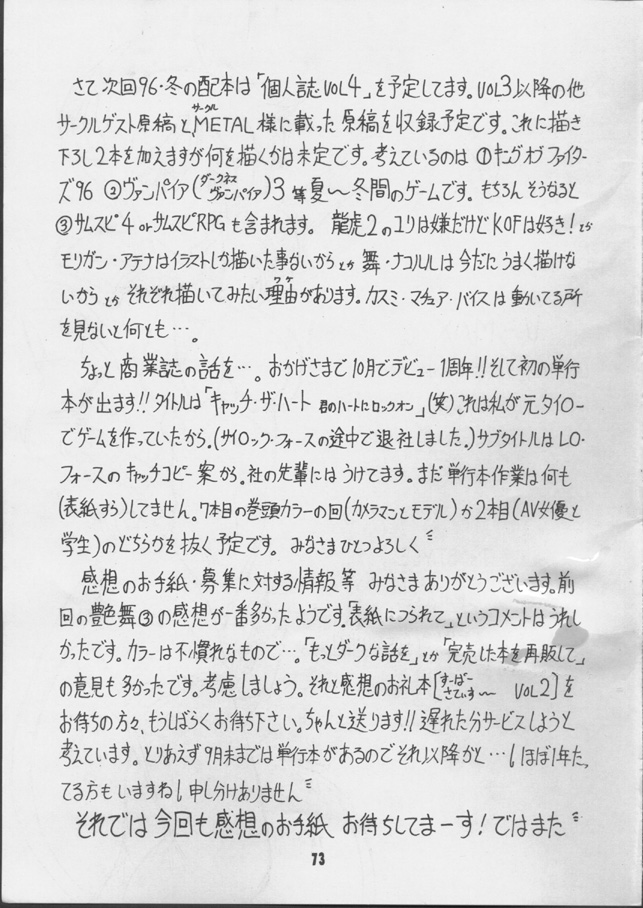 さて次回96・冬の配本は「個人誌VOL4」を予定してます。VOL3以降の他
サークル
サークルゲスト原稿と、METAL様に載った原稿を収録予定です。これに描き
下ろし2本を加えますが何を描くかは未定です。考えているのは①キングオブファイター
ズ96 ②ヴァンパイア(ダークネス ヴァンパイア)3等夏〜冬間のゲームです。もちろんそうなると
③サムスピ4 orサムスピRPGも含まれます。 龍虎2のユリは嫌だけどKOFは好き!とか
モリガン・アテナはイラストしか描いた事ないからとか 舞・ナコルルは今だにうまく描けな
いからとか それぞれ描いてみたい理由(ワケ)があります。カスミ・マチュア・バイスは動いてる所
を見ないと何とも…。
ちょっと商業誌の話を…。おかげさまで10月でデビュー1周年!!そして初の単行
本が出ます!!タイトルは「キャッチ・ザ・ハート 君のハートにロックオン」(笑)これは私が元タイロー
でゲームを作っていたから。(サイロック・フォースの途中で退社しました。)サブタイトルはLO・
フォースのキャッチコピー案から。社の先輩にはうけてます。まだ単行本作業は何も
(表紙すら)してません。7本目の巻頭カラーの回(カメラマンとモデル)か2本目(AV女優と
学生)のどちらかを抜く予定です。 みなさまひとつよろしく
感想のお手紙・募集に対する情報等 みなさまありがとうございます。前
回の艶色舞③の感想が一番多かったようです。「表紙につられて」というコメントはうれし
かったです。カラーは不慣れなもので…。「もっとダークな話を」とか「完売した本を再販して」
の意見も多かったです。考慮しましょう。それと感想のお礼本[すーぱーさでぃすー〜 VOL2]を
お待ちの方々、もうしばらくお待ち下さい。ちゃんと送ります!!遅れた分サービスしようと
考えています。とりあえず9月末までは単行本があるのでそれ以降かと…(ほぼ1年た、
てる方もいますね)申し分けありません
それでは今回も感想のお手紙 お待ちしてまーす!ではまた
73